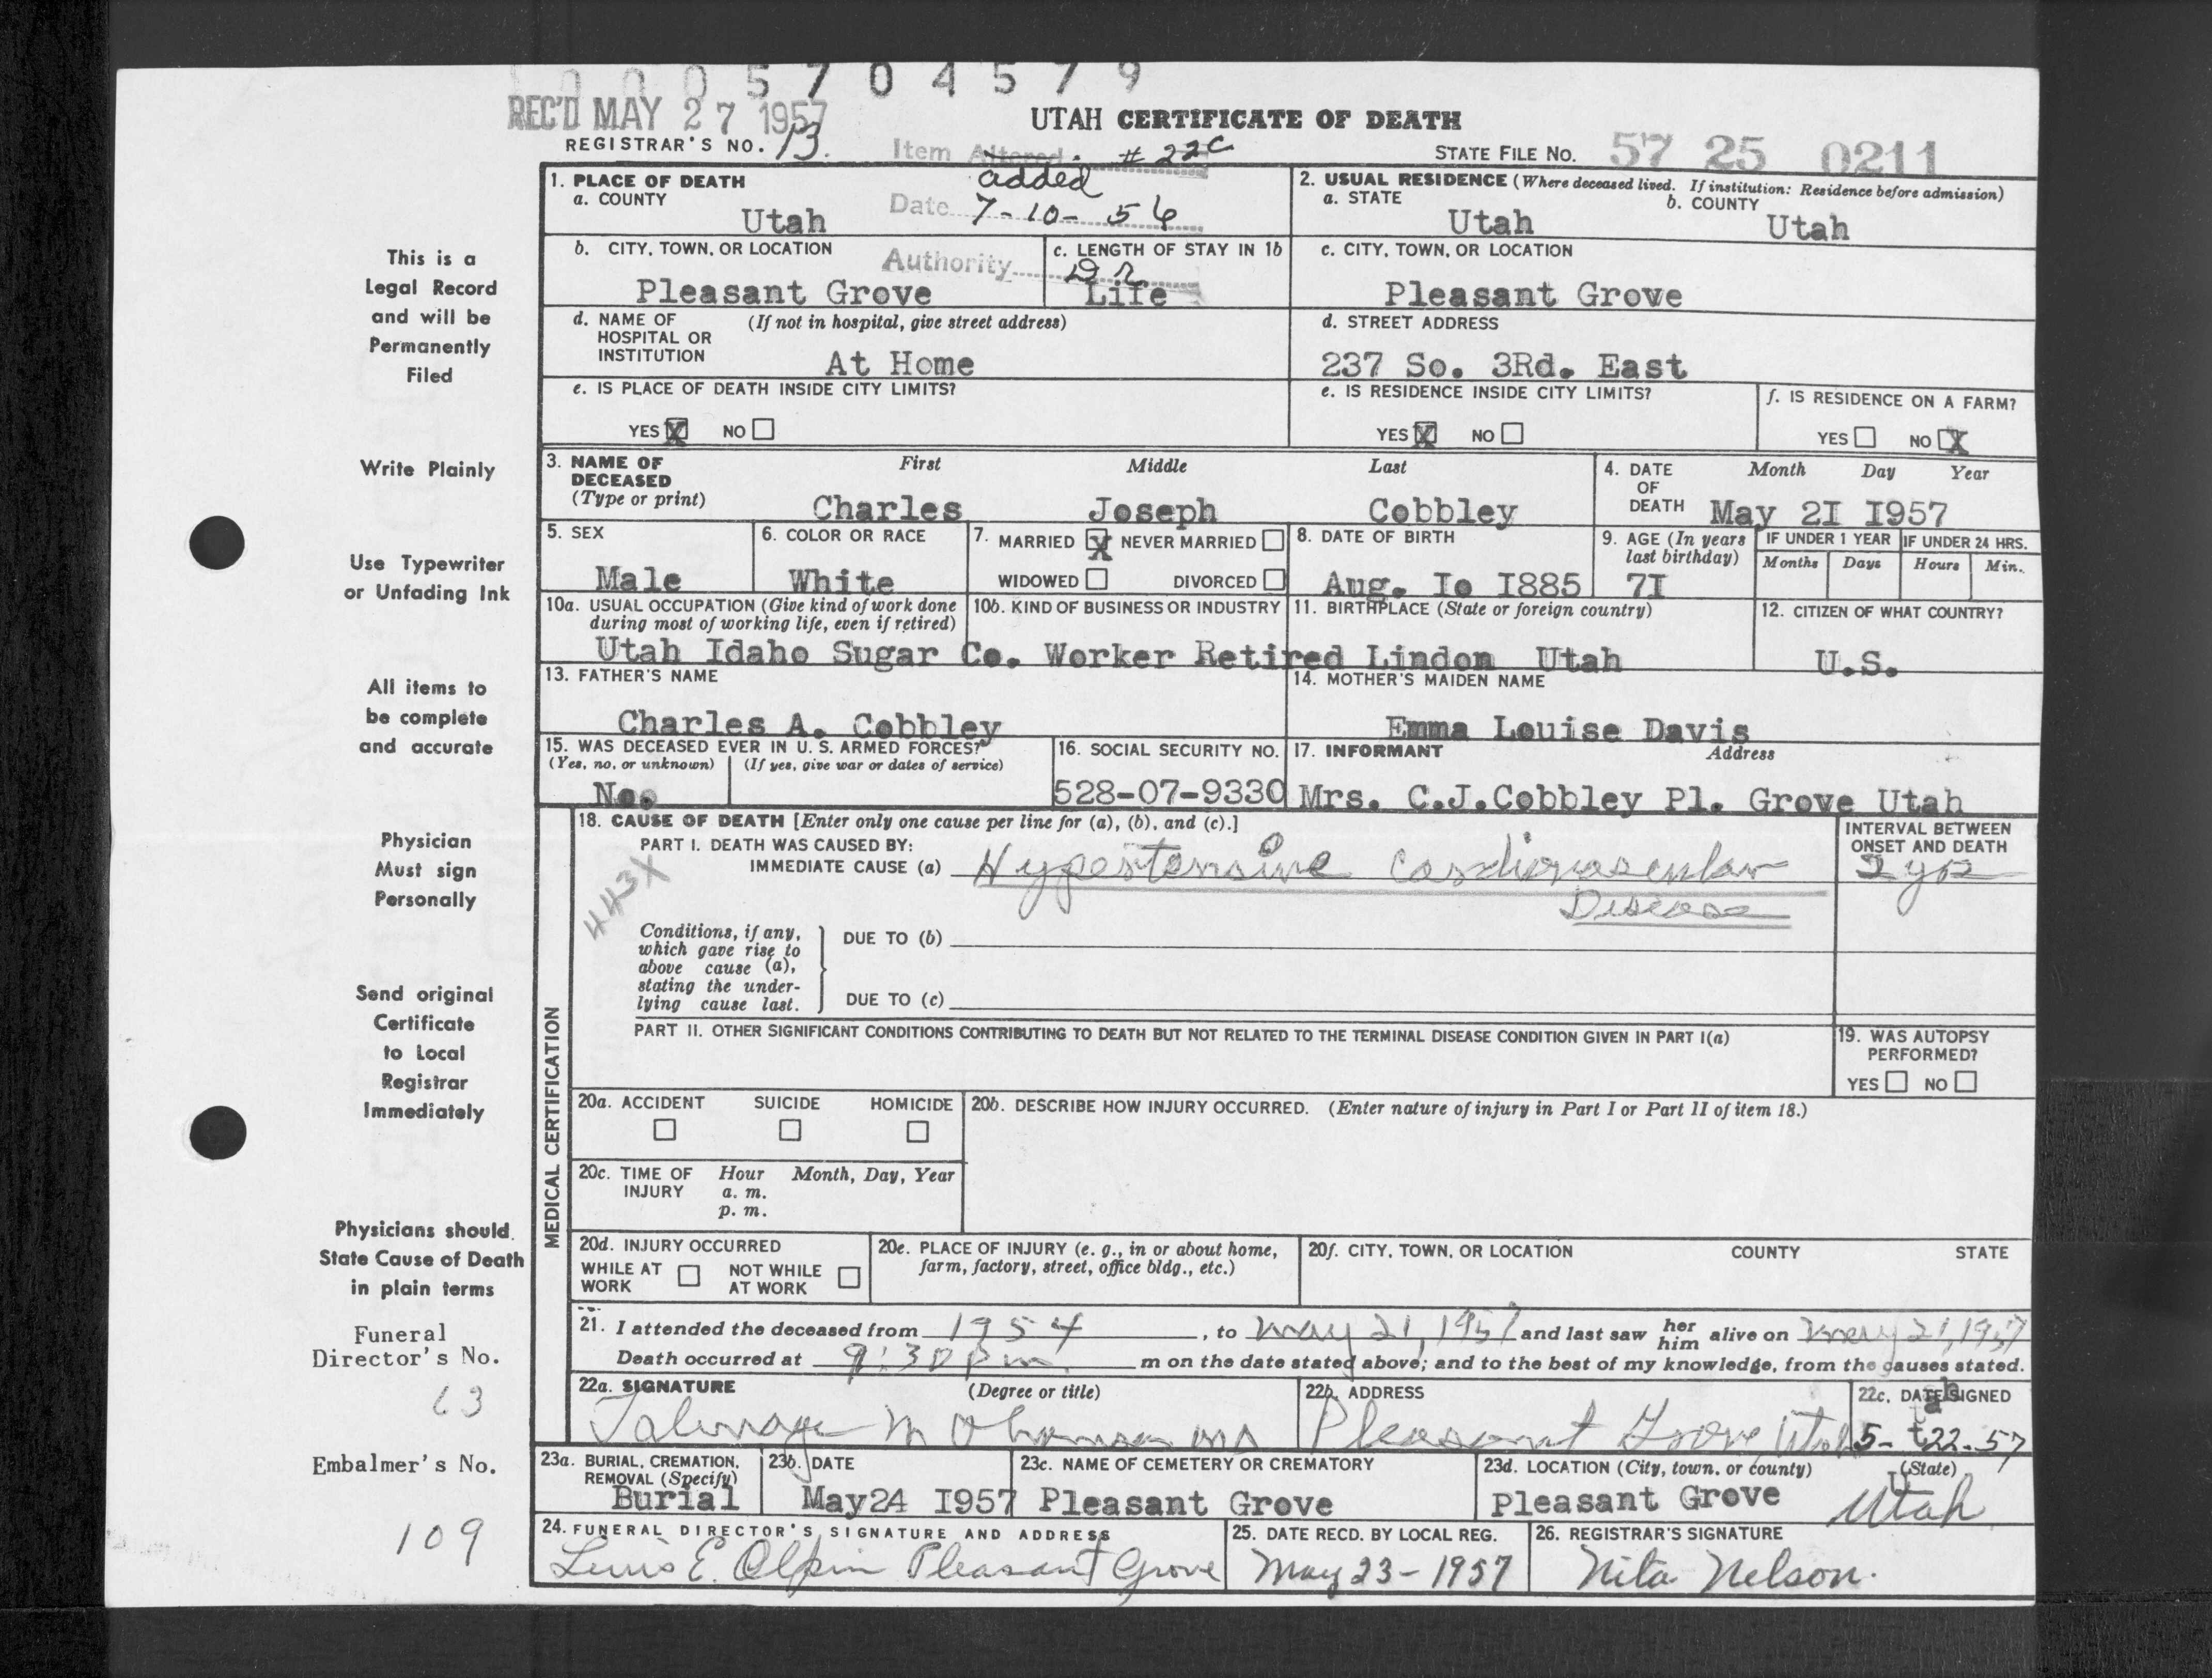 0005704579
REC'D MAY 27 1957
UTAH CERTIFICATE OF DEATH
REGISTRAR'S NO. 13.
Item Altered # 22c
added
STATE FILE NO. 57 25 0211
Date 7-10-56
Authority Dr
1. PLACE OF DEATH
a. COUNTY
Utah
2. USUAL RESIDENCE (Where deceased lived. If institution: Residence before admission)
a. STATE
Utah
b. COUNTY
Utah
b. CITY, TOWN, OR LOCATION
Pleasant Grove
c. LENGTH OF STAY IN 1b
Life
c. CITY, TOWN, OR LOCATION
Pleasant Grove
d. NAME OF (If not in hospital, give street address)
HOSPITAL OR
INSTITUTION
At Home
d. STREET ADDRESS
237 So. 3Rd. East
e. IS PLACE OF DEATH INSIDE CITY LIMITS?
YES X NO
e. IS RESIDENCE INSIDE CITY LIMITS?
YES X NO
f. IS RESIDENCE ON A FARM?
YES NO X
3. NAME OF
DECEASED
(Type or print)
First Middle Last
Charles Joseph Cobbley
4. DATE
OF
DEATH
Month Day Year
May 2I I957
5. SEX
Male
6. COLOR OR RACE
White
7. MARRIED X NEVER MARRIED
WIDOWED DIVORCED
8. DATE OF BIRTH
Aug. Io I885
9. AGE (In years
last birthday)
7I
IF UNDER 1 YEAR
Months Days
IF UNDER 24 HRS.
Hours Min.
10a. USUAL OCCUPATION (Give kind of work done
during most of working life, even if retired)
10b. KIND OF BUSINESS OR INDUSTRY
Utah Idaho Sugar Co. Worker Retired
11. BIRTHPLACE (State or foreign country)
Lindon Utah
12. CITIZEN OF WHAT COUNTRY?
U.S.
13. FATHER'S NAME
Charles A. Cobbley
14. MOTHER'S MAIDEN NAME
Emma Louise Davis
15. WAS DECEASED EVER IN U. S. ARMED FORCES?
(Yes, no, or unknown) (If yes, give war or dates of service)
No.
16. SOCIAL SECURITY NO.
528-07-9330
17. INFORMANT Address
Mrs. C.J.Cobbley Pl. Grove Utah
MEDICAL CERTIFICATION
18. CAUSE OF DEATH [Enter only one cause per line for (a), (b), and (c).]
PART I. DEATH WAS CAUSED BY:
IMMEDIATE CAUSE (a) Hypertensive Cardiovascular
Disease
443X
INTERVAL BETWEEN
ONSET AND DEATH
2 yr
Conditions, if any,
which gave rise to
above cause (a),
stating the under-
lying cause last.
DUE TO (b)
DUE TO (c)
PART II. OTHER SIGNIFICANT CONDITIONS CONTRIBUTING TO DEATH BUT NOT RELATED TO THE TERMINAL DISEASE CONDITION GIVEN IN PART I(a)
19. WAS AUTOPSY
PERFORMED?
YES NO
20a. ACCIDENT SUICIDE HOMICIDE
20b. DESCRIBE HOW INJURY OCCURRED. (Enter nature of injury in Part I or Part II of item 18.)
20c. TIME OF Hour Month, Day, Year
INJURY a. m.
p. m.
20d. INJURY OCCURRED
WHILE AT NOT WHILE
WORK AT WORK
20e. PLACE OF INJURY (e. g., in or about home,
farm, factory, street, office bldg., etc.)
20f. CITY, TOWN, OR LOCATION COUNTY STATE
21. I attended the deceased from 1954, to May 21, 1957 and last saw her him alive on May 21, 1957
Death occurred at 9:30 pm m on the date stated above; and to the best of my knowledge, from the causes stated.
22a. SIGNATURE (Degree or title)
Talmage M MD
22b. ADDRESS
Pleasant Grove, Utah
22c. DATE SIGNED
5-22-57
Utah
23a. BURIAL, CREMATION,
REMOVAL (Specify)
Burial
23b. DATE
May24 I957
23c. NAME OF CEMETERY OR CREMATORY
Pleasant Grove
23d. LOCATION (City, town, or county) (State)
Pleasant Grove Utah
24. FUNERAL DIRECTOR'S SIGNATURE AND ADDRESS
Lewis E. Olpin Pleasant Grove
25. DATE RECD. BY LOCAL REG.
May 23-1957
26. REGISTRAR'S SIGNATURE
Nita Nelson.
This is a
Legal Record
and will be
Permanently
Filed
Write Plainly
Use Typewriter
or Unfading Ink
All items to
be complete
and accurate
Physician
Must sign
Personally
Send original
Certificate
to Local
Registrar
Immediately
Physicians should
State Cause of Death
in plain terms
Funeral
Director's No.
63
Embalmer's No.
109